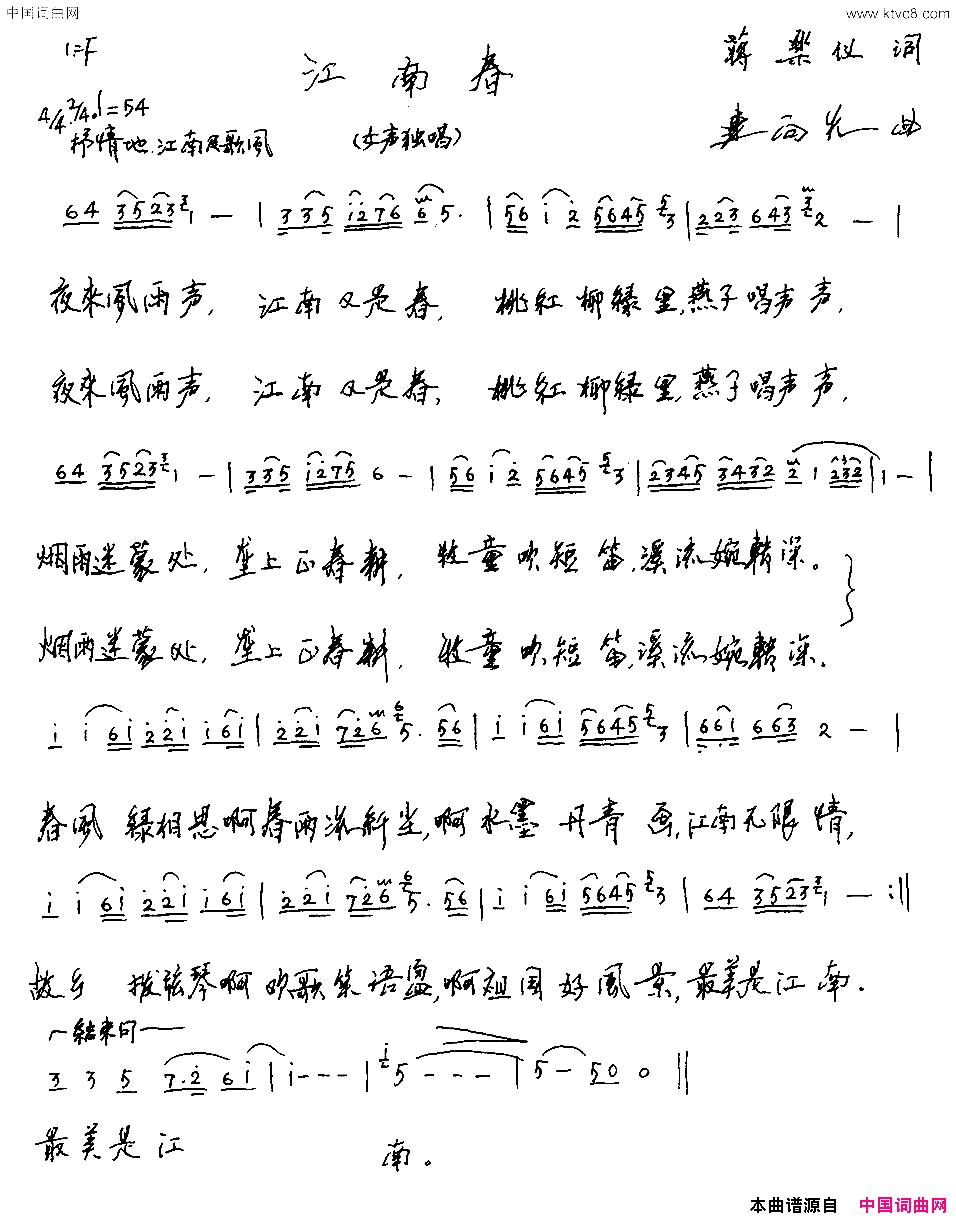 中国词曲网 www.ktvc8.com
1=F
江南春
蒋樂仪 词
4/4 2/4 ♩=54
抒情地.江南民歌風
(女声独唱)
曲
64 3523 1 — | 335 i276 6 5. | 56 i 2 5645 3 | 223 643 2 — |
夜來風雨声, 江南又是春, 桃紅柳緑里,燕子唱声声,
夜來風雨声, 江南又是春, 桃紅柳緑里,燕子唱声声,
64 3523 1 — | 335 i275 6 — | 56 i 2 5645 3 | 2345 3432 2 1 232 | 1 — |
烟雨迷蒙处, 垄上正春耕, 牧童吹短笛,溪流婉轉深。
烟雨迷蒙处, 垄上正春耕, 牧童吹短笛,溪流婉轉深.
i i 6i 22i i6i | 22i 7266 5. 56 | i i 6i 5645 3 | 66i 663 2 — |
春風 緑相思啊春雨洗紅尘,啊水墨丹青画,江南无限情,
i i 6i 22i i6i | 22i 7266 5. 56 | i i 6i 5645 3 | 64 3523 1 — :‖
故乡 拨弦琴啊 欢歌笑语盈,啊祖国好風景,最美是江南.
结束句
3 3 5 7.2 6i | i - - - | 5 - - - | 5 — 50 0 ‖
最美是江 南。
本曲谱源自 中国词曲网